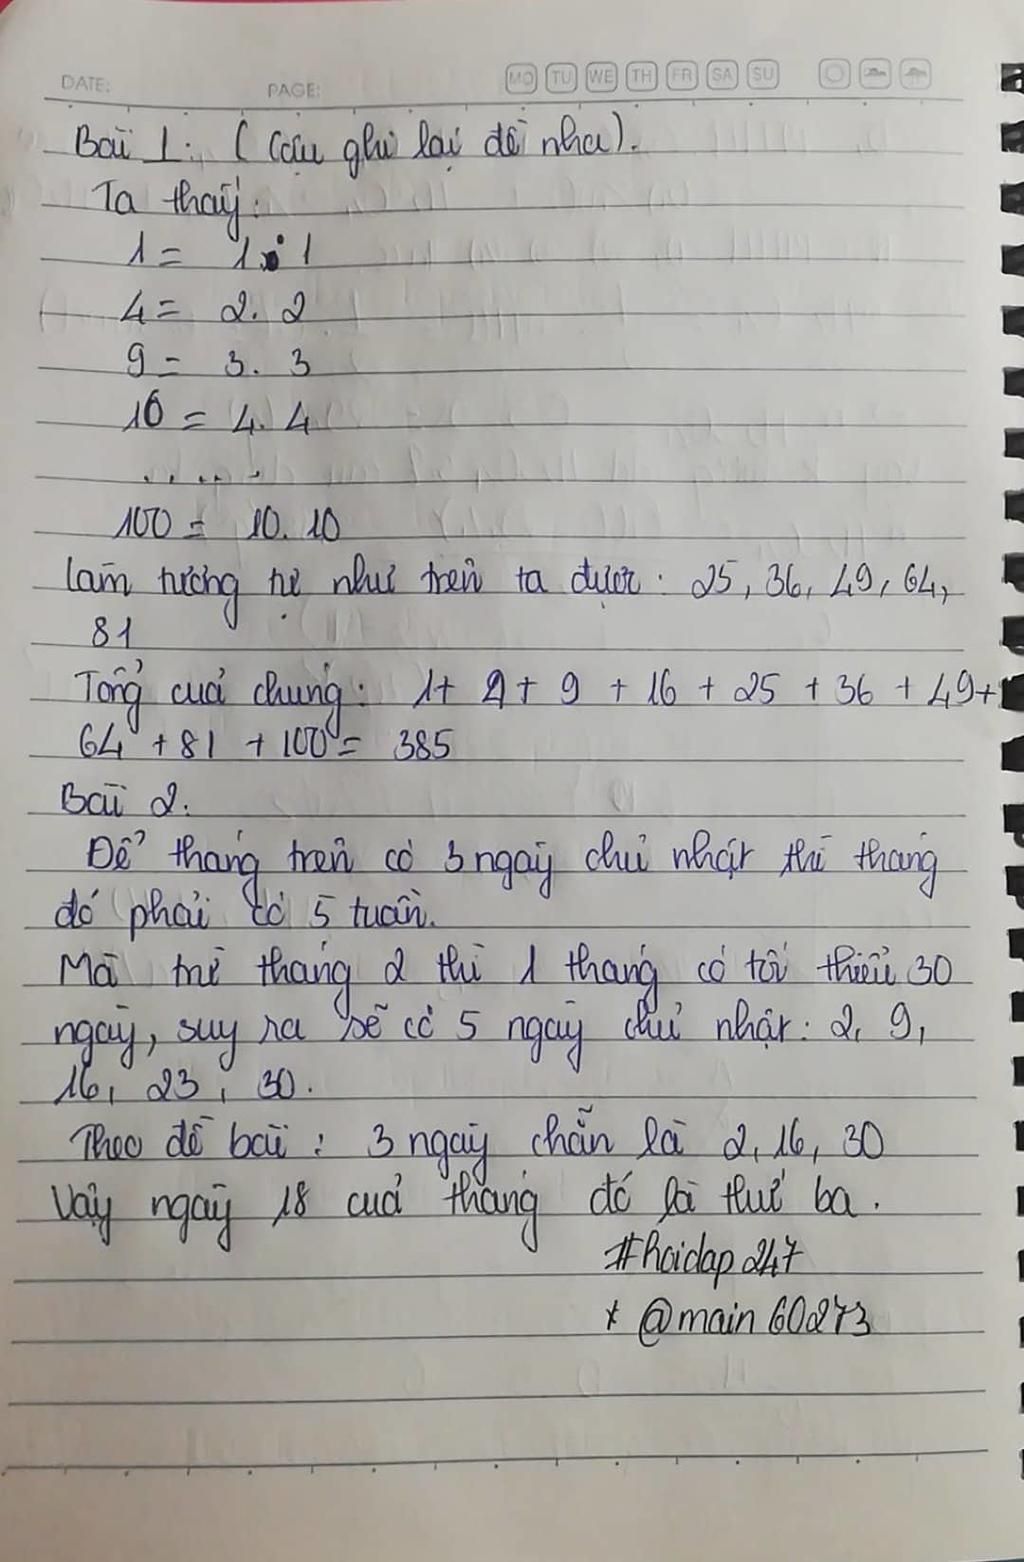 DATE: PAGE: MO TU WE TH FR SA SU
Bài 1: (Cậu ghi lại đề nha).
Ta thấy:
1 = 1 . 1
4 = 2. 2
9 = 3. 3
16 = 4. 4
.....
100 = 10. 10
Làm tương tự như trên ta được: 25, 36, 49, 64,
81
Tổng của chúng: 1+ 4+ 9 + 16 + 25 + 36 + 49+
64 + 81 + 100 = 385
Bài 2:
Để tháng trên có 3 ngày chủ nhật thì tháng
đó phải có 5 tuần.
Mà trừ tháng 2 thì 1 tháng có tối thiểu 30
ngày, suy ra sẽ có 5 ngày chủ nhật: 2, 9,
16, 23, 30.
Theo đề bài: 3 ngày chẵn là 2, 16, 30
Vậy ngày 18 của tháng đó là thứ ba.
#hoidap247
* @main60273